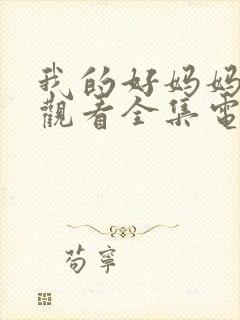 我的好妈妈
觀看全集電
苟寧